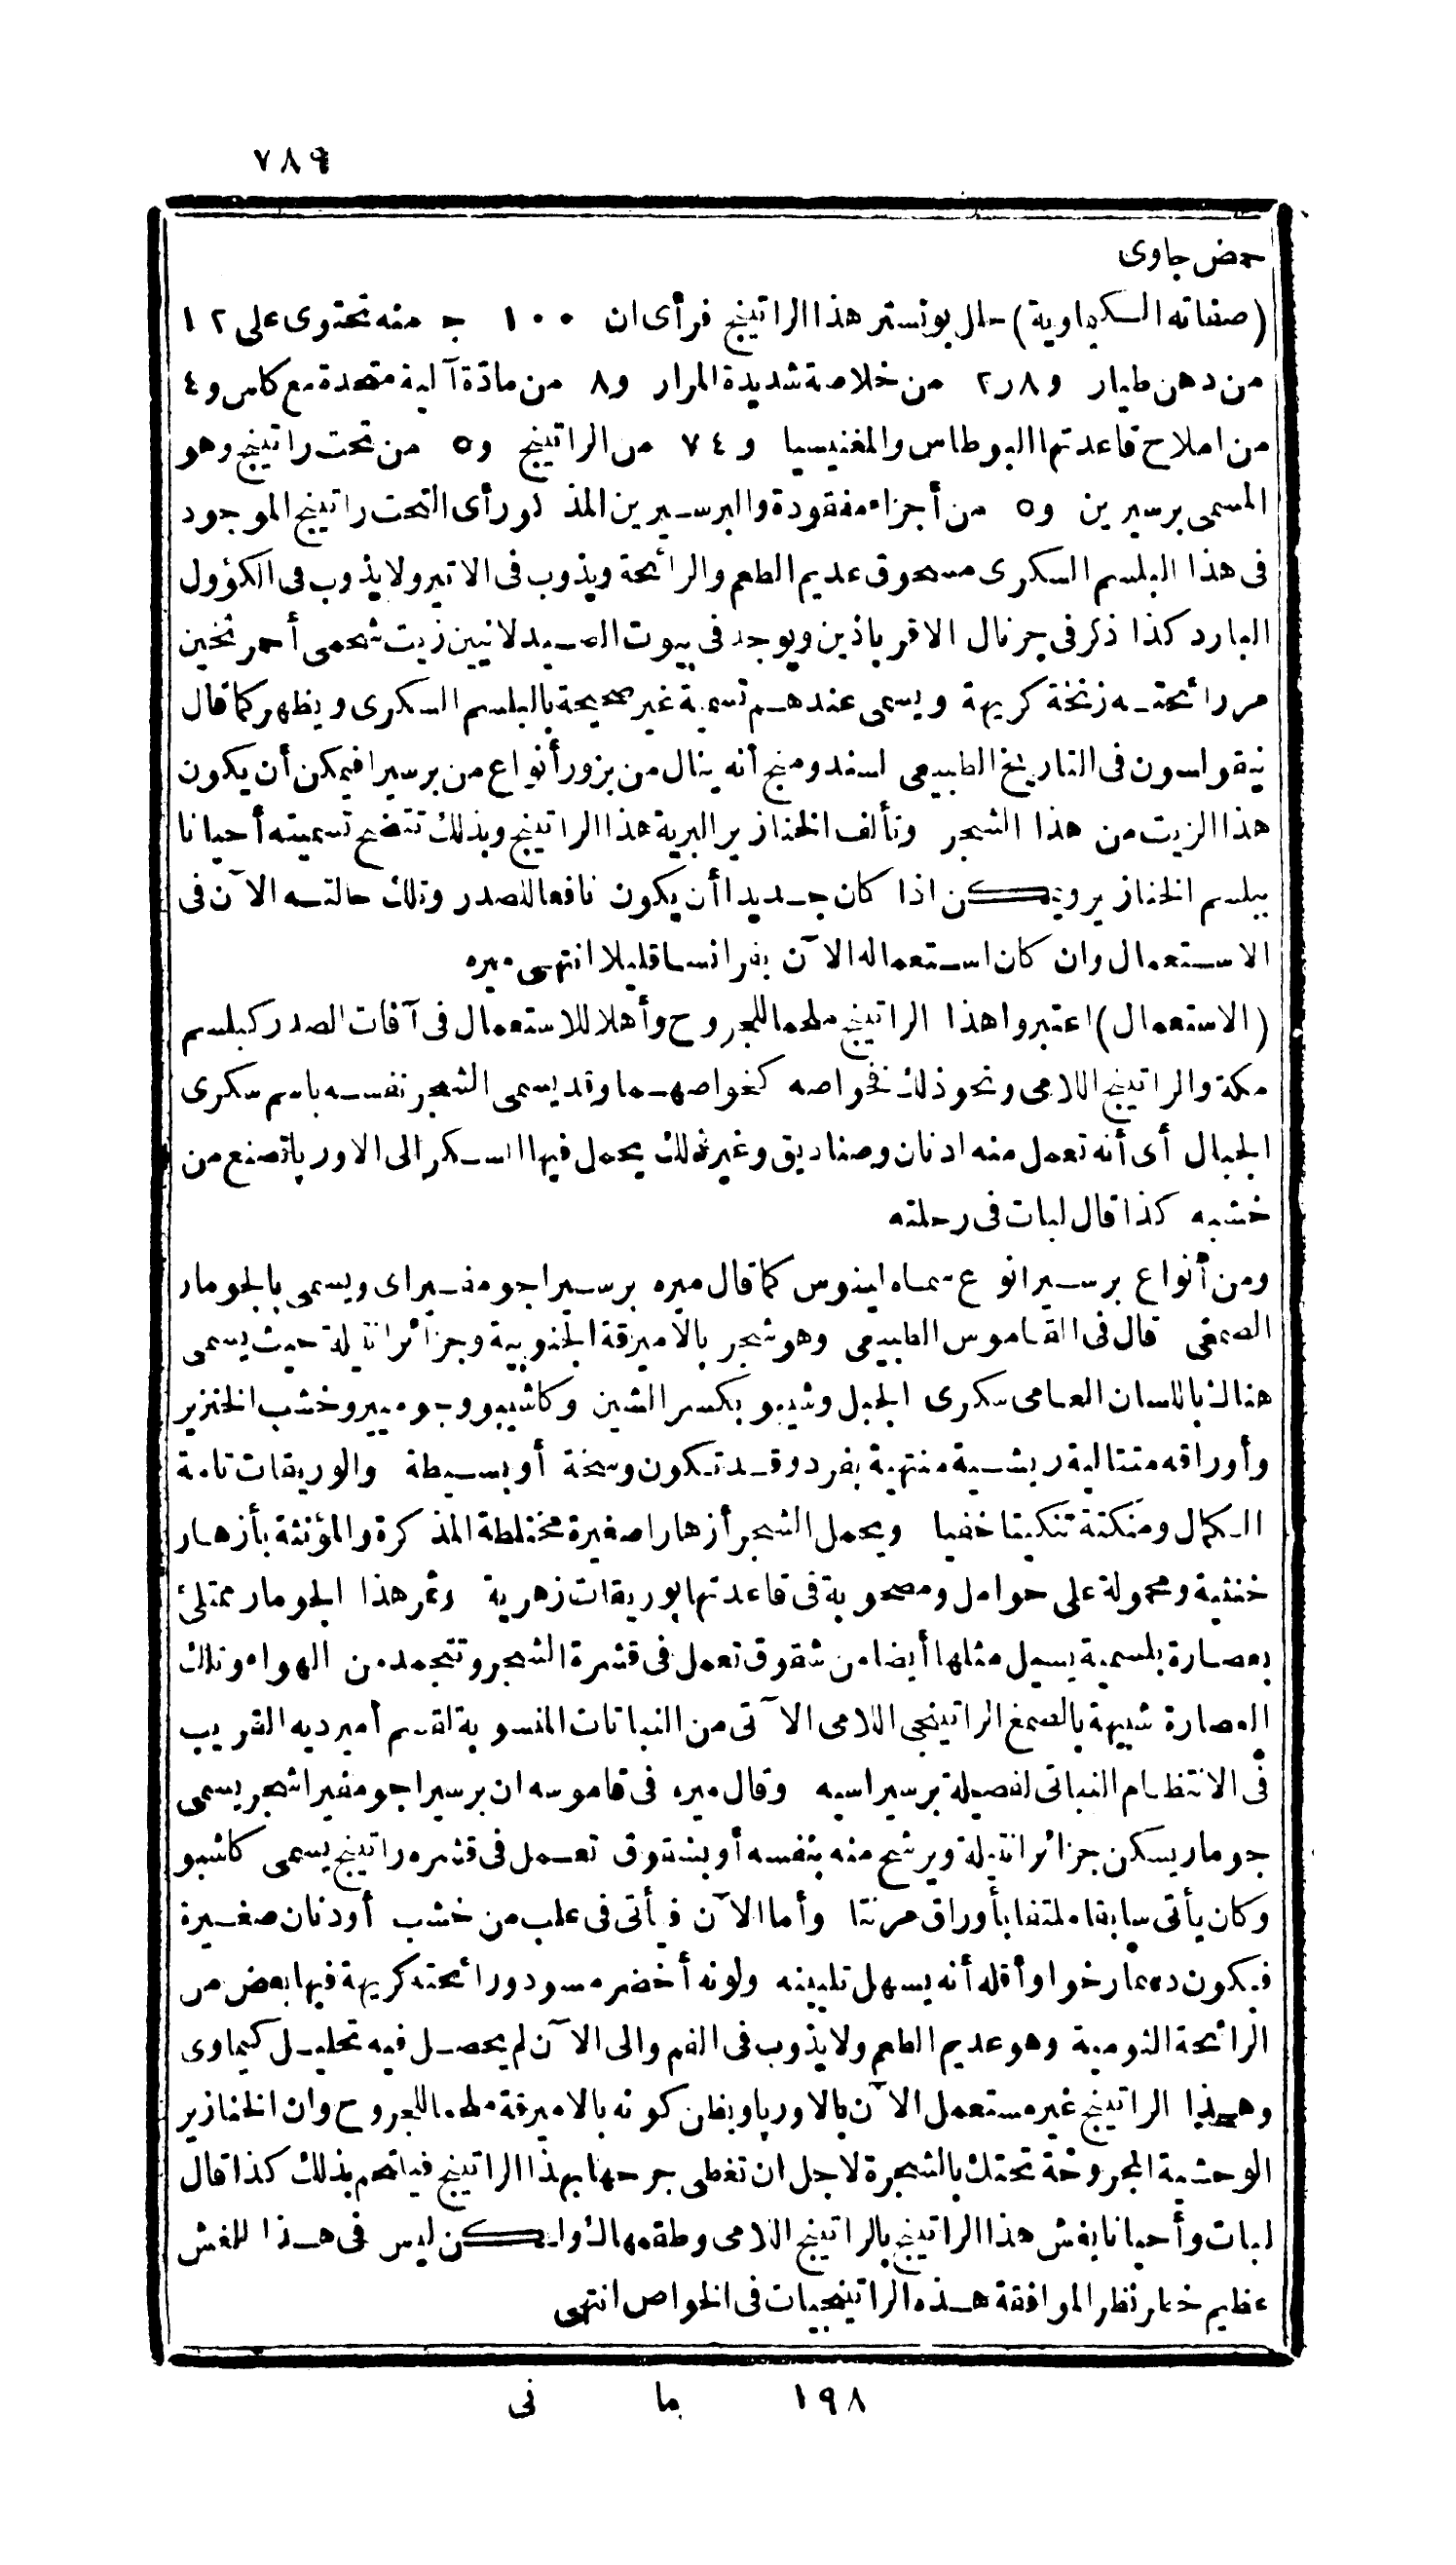 ٧٨٩
حمض جاوى
(صفاته الكيماوية) حلل بونستر هذا الراتينج فرأى ان ١٠٠ ج منه تحتوى على ١٢
من دهن طيار و٨ر٢ من خلاصة شديدة المرار و٨ من مادّة آلية متحدة مع كلس و٤
من املاح قاعدتها البوطاس والمغنيسيا و٧٤ من الراتينج و٥ من تحت راتينج وهو
المسمى برسيرين و٥ من أجزاء مفقودة والبرسيرين المذكور أى التحت راتينج الموجود
فى هذا البلسم السكرى مسحوق عديم الطعم والرائحة ويذوب فى الاتير ولا يذوب فى الكؤول
البارد كذا ذكر فى جرنال الاقرباذين ويوجد فى بيوت الصيدلانيين زيت شحمى أحمر ثخين
مر رائحته زنخة كريهة ويسمى عندهم تسمية غير صحيحة بالبلسم السكرى ويظهر كما قال
نيقولسون فى التاريخ الطبيعى لسندومنج أنه ينال من بزور أنواع من برسيرا فيمكن أن يكون
هذا الزيت من هذا الشجر وتألف الخنازير البرية هذا الراتينج وبذلك تتضح تسميته أحيانا
ببلسم الخنازير ويمكن اذا كان جديدا أن يكون نافعا للصدر وتلك حالته الآن فى
الاستعمال وان كان استعماله الآن بفرانسا قليلا انتهى ميره
(الاستعمال) اعتبروا هذا الراتينج ملحما للجروح وأهلا للاستعمال فى آفات الصدر كبلسم
مكة والراتينج اللامى ونحو ذلك فخواصه كخواصهما وقد يسمى الشجر نفسه باسم سكرى
الجبال أى أنه تعمل منه ادنان وصناديق وغير ذلك يحمل فيها السكر الى الاوربا تصنع من
خشبه كذا قال لبات فى رحلته
ومن أنواع برسيرا نوع سماه لينوس كما قال ميره برسيرا جومفيراى ويسمى بالجومار
الصمغى قال فى القاموس الطبيعى وهو شجر بالاميرقة الجنوبية وجزائر انتيلة حيث يسمى
هنالك باللسان العامى سكرى الجبل وشيبو بكسر الشين وكاشيبو وجوميير وخشب الخنزير
وأوراقه متتالية ريشية منتهية بفرد وقد تكون وسخة أو بسيطة والوريقات تامة
الكمال ومنكتة تنكيتا خفيا ويحمل الشجر أزهارا صغيرة مختلطة المذكرة والمؤنثة بأزهار
خنثية ومحمولة على حوامل ومصحوبة فى قاعدتها بوريقات زهرية وثمر هذا الجومار ممتلئ
بعصارة بلسمية يسيل مثلها أيضا من شقوق تعمل فى قشرة الشجر وتتجمد من الهواء وتلك
العصارة شبيهة بالصمغ الراتينجى اللامى الآتى من النباتات المنسوبة لقسم أميرديه القريب
فى الانتظام النباتى لفصيلة برسيراسيه وقال ميره فى قاموسه ان برسيرا جومفيرا شجر يسمى
جومار يسكن جزائر انتيلة ويرشح منه بنفسه أو بشقوق تعمل فى قشره راتينج يسمى كاشبو
وكان يأتى سابقا ملتفا بأوراق مرنتا وأما الآن فيأتى فى علب من خشب أو دنان صغيرة
فيكون دهنا رخوا وأقله أنه يسهل تليينه ولونه أخضر مسود ورائحته كريهة فيها بعض من
الرائحة الثومية وهو عديم الطعم ولا يذوب فى الفم والى الآن لم يحصل فيه تحليل كيماوى
وهذا الراتينج غير مستعمل الآن بالاوربا ويظن كونه بالاميرقة ملحما للجروح وان الخنازير
الوحشية المجروحة تحتك بالشجرة لاجل ان تغطى جرحها بهذا الراتينج فيلتحم بذلك كذا قال
لبات وأحيانا يغش هذا الراتينج بالراتينج اللامى وطقمهاك ولكن ليس فى هذا الغش
عظيم خطر نظر الموافقة هذه الراتينجيات فى الخواص انتهى
١٩٨ ما نى